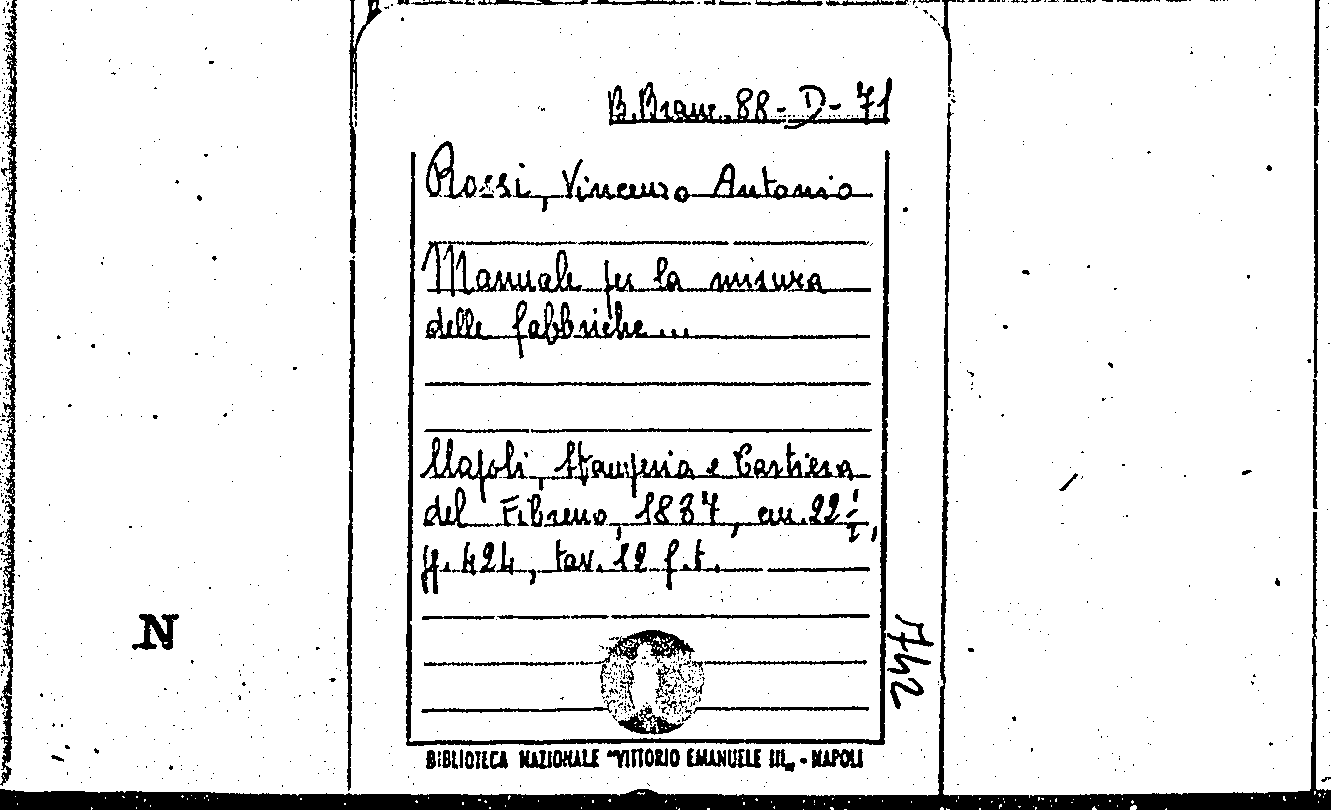 B. Branc. 88-D-71
Rossi, Vincenzo Antonio
Manuale per la misura
delle fabbriche...
Napoli, Stamperia e Cartiera
del Fibreno, 1837, cm. 22 ½,
pp. 424, tav. 12 f.t.
N
742
BIBLIOTECA NAZIONALE "VITTORIO EMANUELE III„ - NAPOLI